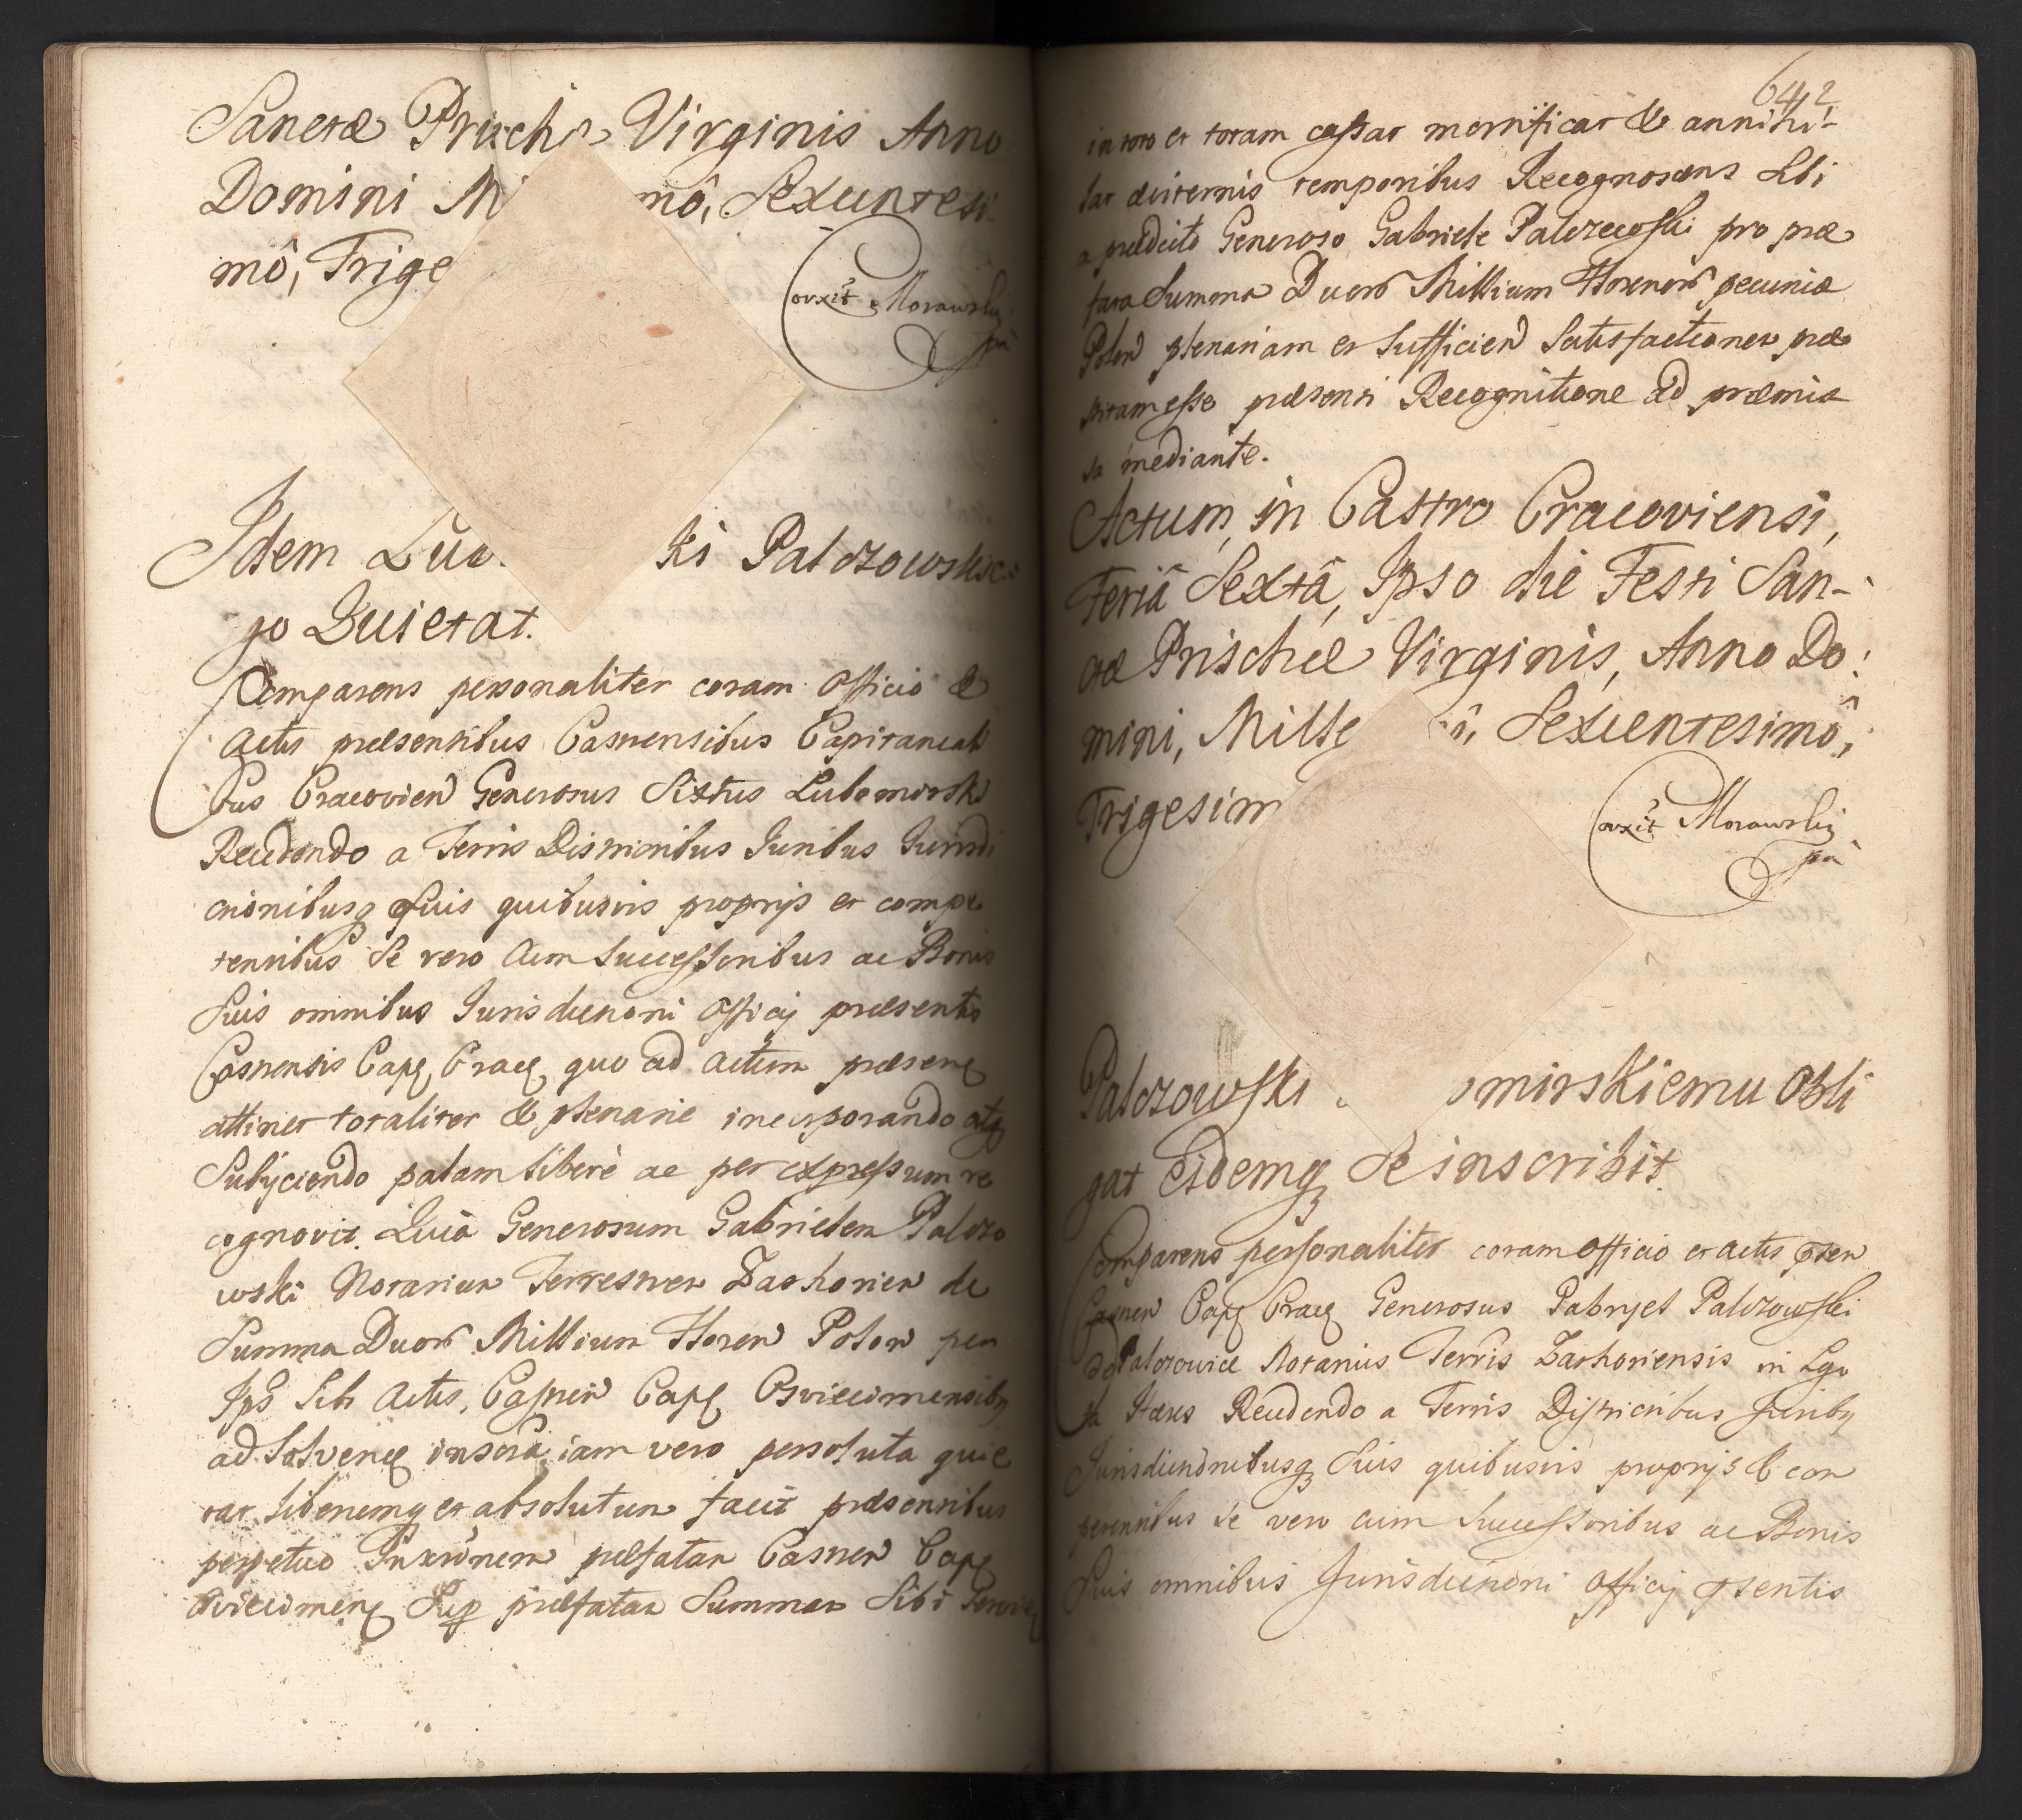 Sanctæ Prischæ Virginis Anno
Domini Mi mô, Sexcentesi-
mô, Trige
Corxit Morawski
pa
Idem Lu ki Palczowskie
go Quietat.
Comparens personaliter coram officio &
Actis præsentibus Castrensibus Capitaneali
bus Cracovien Generosus Sixtus Lubomirski
Recedendo a Terris Districtibus Juribus Jurisdi
ctionibusq suis quibusvis proprijs et compe
tentibus Se vero cum Successoribus ac Bonis
Suis omnibus Jurisdictioni Officij præsentis
Castrensis Capq Cracq quo ad actum præsenq
attinet totaliter & plenarie incorporando atq
Subijciendo palam liberè ac per expressum re
cognovit. Quia Generosum Gabrielem Palczo
wski Notarium Terrestrem Zathorien de
Summa Duor Millium Floren Polon per
Ips Sibi Actis, Castren Capq Osviecimensibq
ad Solvenq inscrip, iam vero persoluta quie
tat liberumq et absolutum facit præsentibus
perpetuo Inscriptionem præfatam Castren Capq
Osviecimenq Sup præfatam Summam Sibi Servieq
642
in toto et totam cassat mortificat & annihi-
lat æviternis temporibus Recognoscens Sibi
a prædicto Generoso Gabriele Palczewski pro præ
fata Summa Duor Millium Florenor pecuniæ
Polon plenariam et Sufficien Satisfactionem præ
stitam esse præsenti Recognitione ad præmis
sa mediante.
Actum, in Castro Cracoviensi,
Feriâ Sextâ, Ipso die Festi San-
ctæ Prischæ Virginis, Anno Do:
mini, Mille ô, Sexcentesimô,
Trigesim
Corxit Morawski
pa
Palczowski omirskiemu Obli
gat Eidemq Se inscribit.
Comparens personaliter coram officio et actis psen
Castren Capq Cracq Generosus Gabryel Palczowski
de Palczowice Notarius Terris Zathoriensis in Lgo
ta Hæres Recedendo a Terris Districtibus Juribq
Jurisdictionibusq Suis quibusvis proprijs & com
petentibus Se vero cum Successoribus ac Bonis
Suis omnibus Jurisdictioni Officij psentis